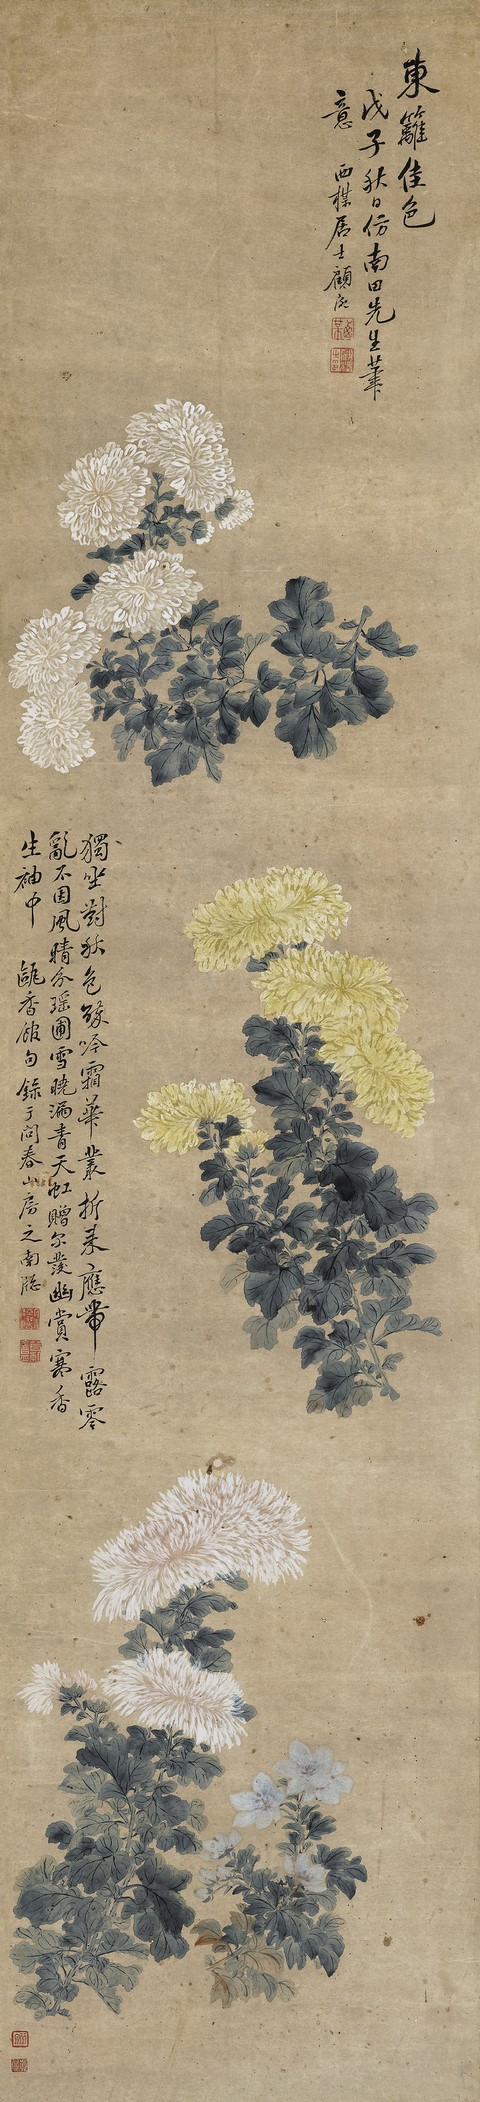 東籬佳色
戊子秋日仿南田先生筆
意 西楳居士顧洛
獨坐對秋色微吟霜華叢折来應帶露零
亂不因風晴分瑶圃雪曉漏青天虹贈尔發幽賞寒香
生袖中 甌香館句錄于問春山房之南牕